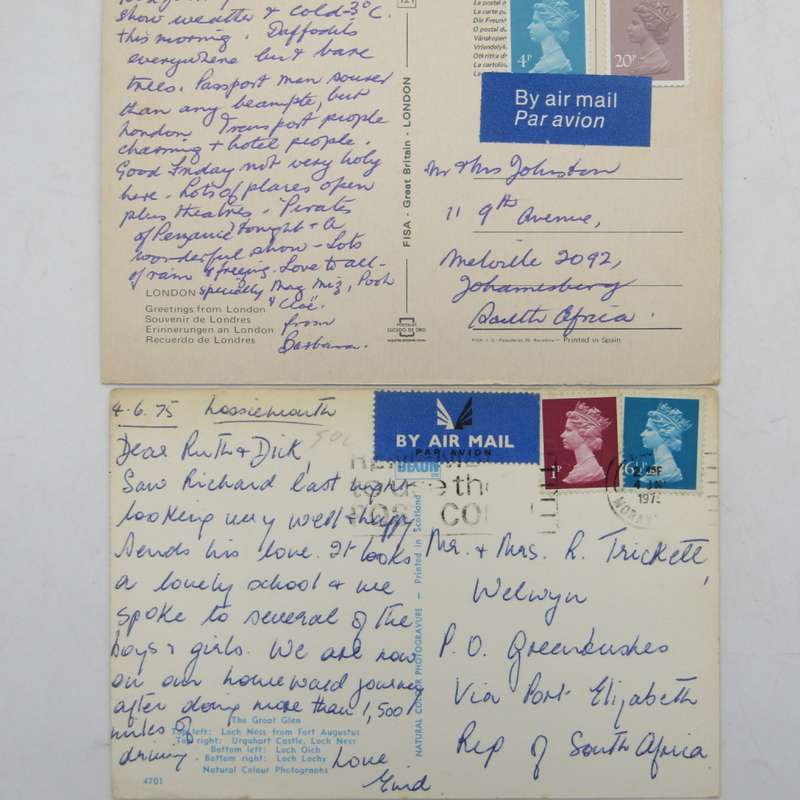 show weather & cold -3°C.
this morning. Daffodils
everywhere but bare
trees. Passport man sourer
than any
but
London Transport people
charming & hotel people.
Good Friday not very holy
here. Lots of places open
plus theatres. "Pirates
of Penzance" tonight & A
wonderful show - Lots
of rain & freezing. Love to all -
specially Mag, Miz, Pooh
& "Cloë".
from
Barbara.
LONDON
Greetings from London
Souvenir de Londres
Erinnerungen an London
Recuerdo de Londres
121
FISA - Great Britain - LONDON
POSTALES
ESCUDO DE ORO
La carte po
Die Freund
O postal d
Vänskapen
Vriendelijk
Otkritka dr
La cartolin
4P
20P
By air mail
Par avion
Mr & Mrs Johnston
11 9th Avenue,
Melville 2092,
Johannesburg
South Africa.
Printed in Spain
4.6.75 Lossiemouth
Dear Ruth & Dick,
Saw Richard last night
looking very well & happy
sends his love. It looks
a lovely school & we
spoke to several of the
boys & girls. We are now
on our homeward journey
after doing more than 1,500
miles of
driving. Love
Enid
The Great Glen
Top left: Loch Ness from Fort Augustus
Top right: Urquhart Castle, Loch Ness
Bottom left: Loch Oich
Bottom right: Loch Lochy
Natural Colour Photographs
4701
DIXON
NATURAL COLOUR PHOTOGRAVURE — Printed in Scotland
BY AIR MAIL
PAR AVION
to use the
1P
6½P
4 JN
197
MORAY
Mr. & Mrs. R. Trickett,
Welwyn
P.O. Greenbushes
Via Port Elizabeth
Rep of South Africa